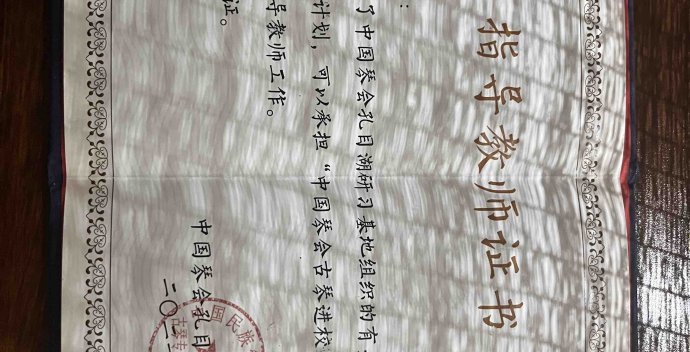 指导教师证书
：
了中国琴会孔目湖研习基地组织的有
计划，可以承担“中国琴会古琴进校
导教师工作。
证。
中国琴会孔目
二〇二
国民族